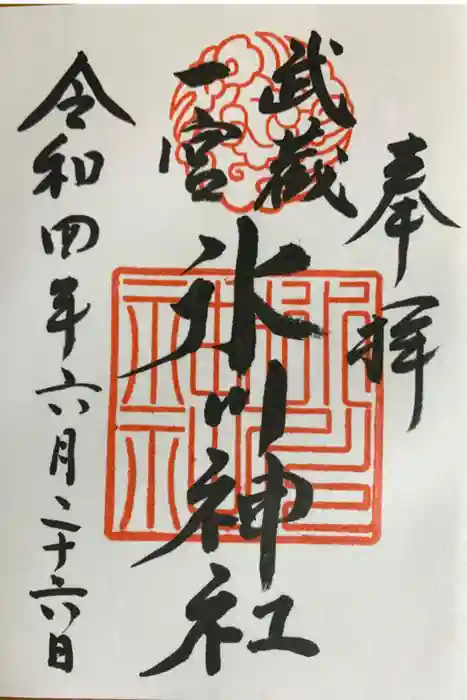 奉拝
武蔵
一宮
氷川神社
令和四年六月二十六日
氷川神社